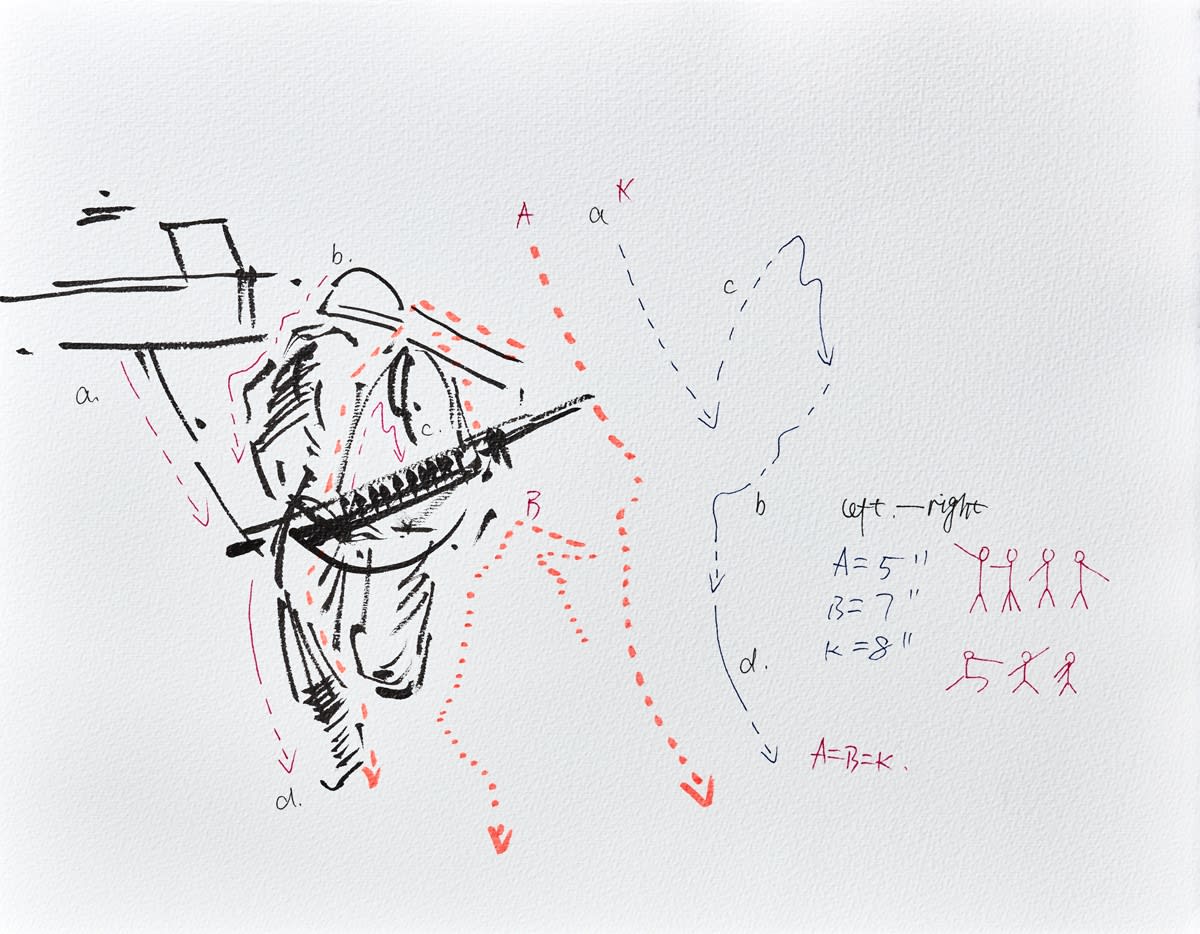 K
A
a
b.
c
a.
c.
B
b
left.—right
A=5"
B=7"
K=8"
d.
A=B=K.
d.